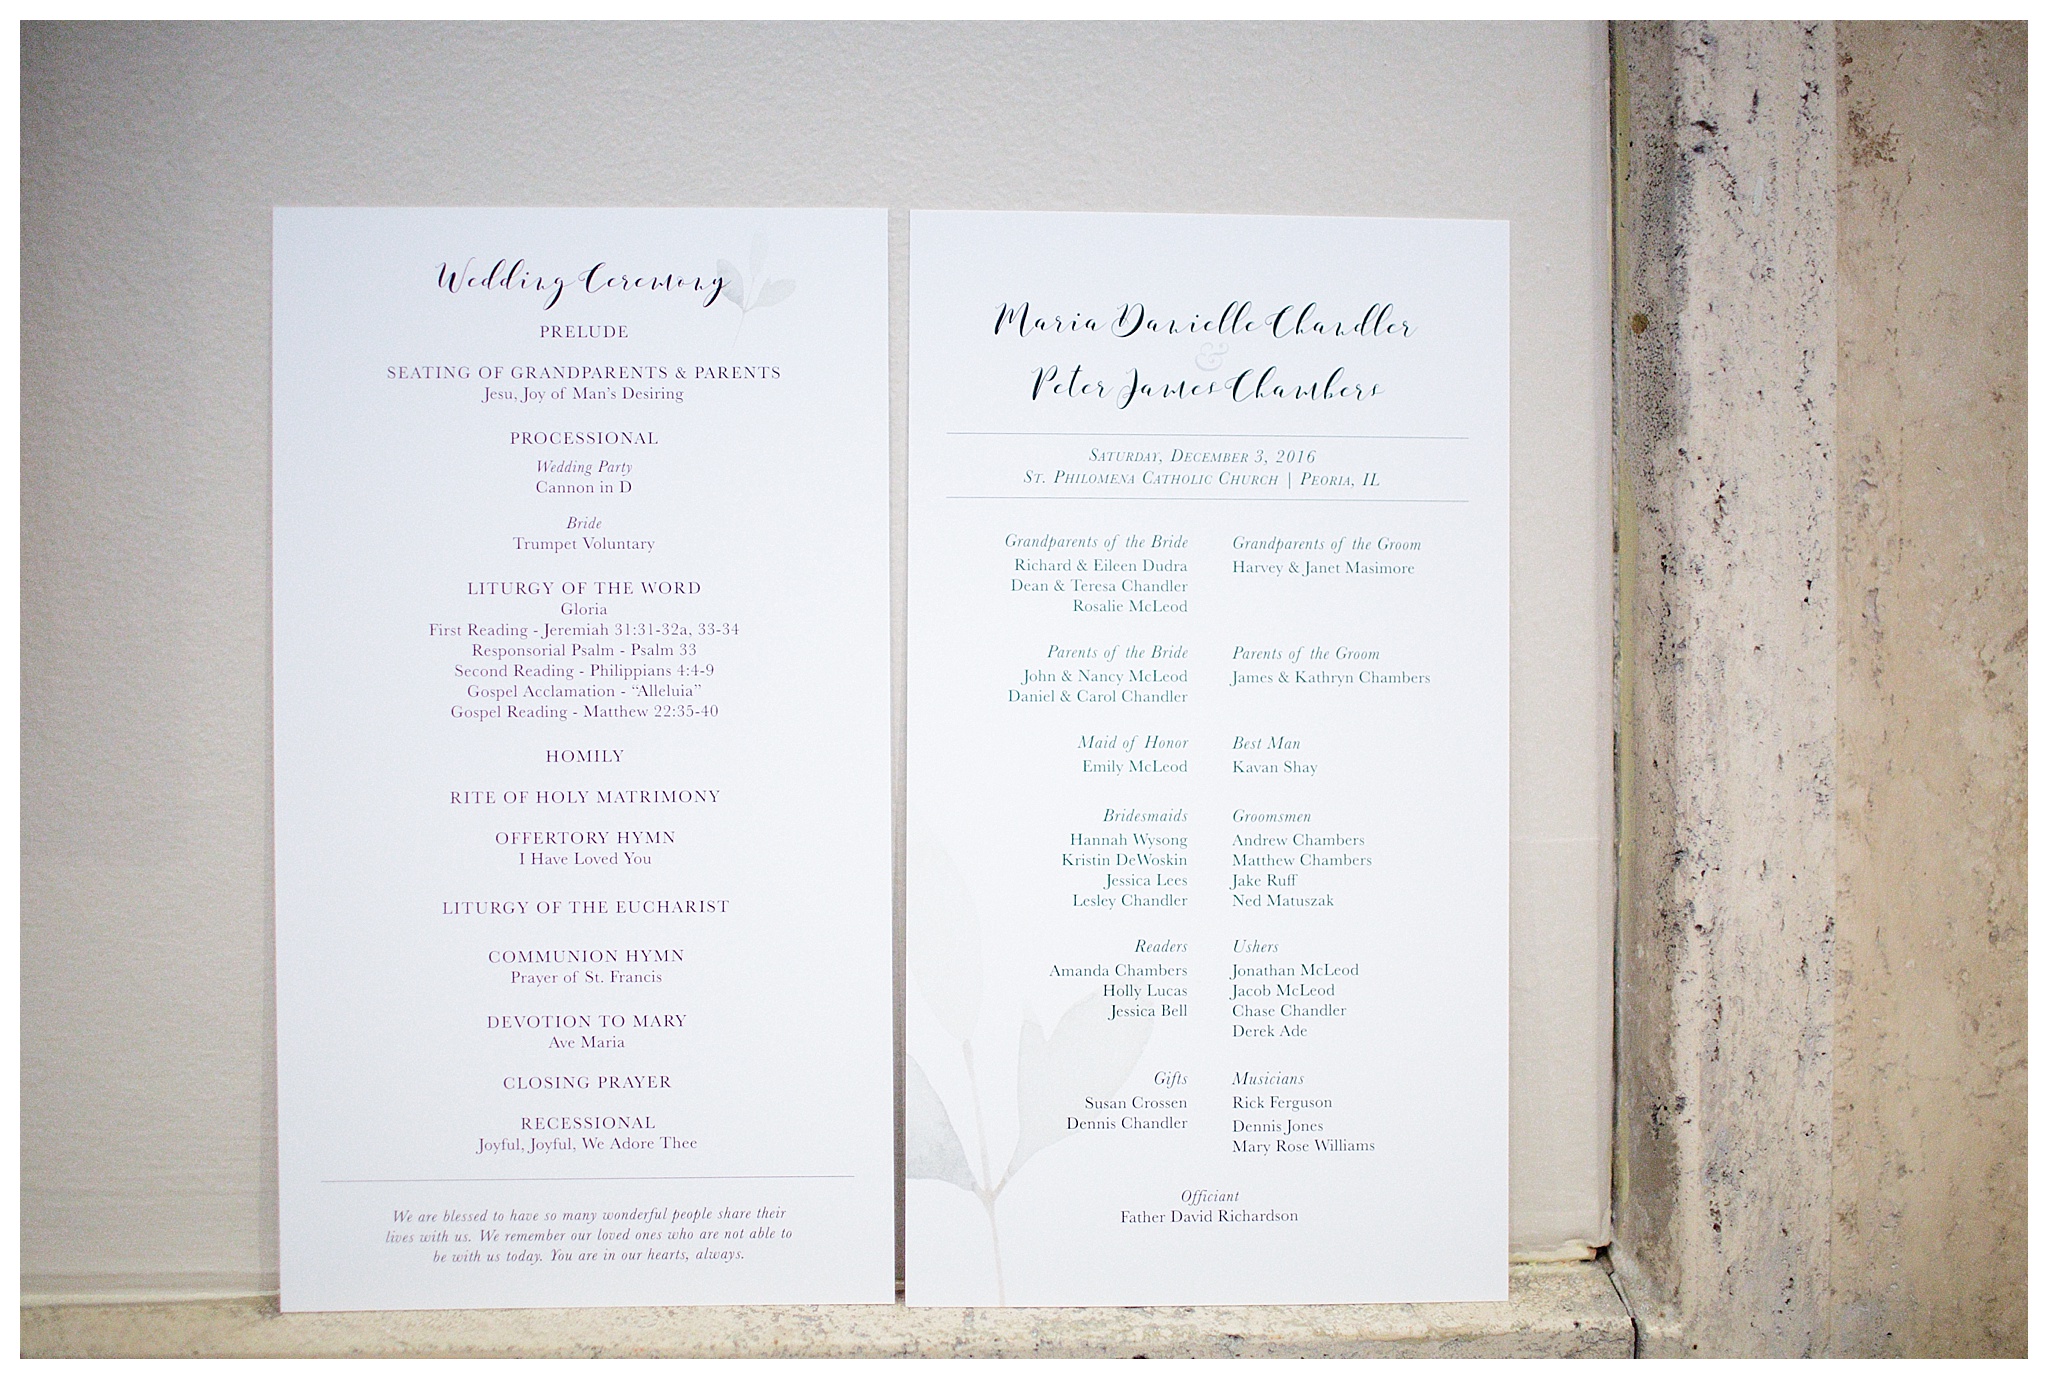 Wedding Ceremony
PRELUDE
SEATING OF GRANDPARENTS & PARENTS
Jesu, Joy of Man's Desiring
PROCESSIONAL
Wedding Party
Cannon in D
Bride
Trumpet Voluntary
LITURGY OF THE WORD
Gloria
First Reading - Jeremiah 31:31-32a, 33-34
Responsorial Psalm - Psalm 33
Second Reading - Philippians 4:4-9
Gospel Acclamation - “Alleluia”
Gospel Reading - Matthew 22:35-40
HOMILY
RITE OF HOLY MATRIMONY
OFFERTORY HYMN
I Have Loved You
LITURGY OF THE EUCHARIST
COMMUNION HYMN
Prayer of St. Francis
DEVOTION TO MARY
Ave Maria
CLOSING PRAYER
RECESSIONAL
Joyful, Joyful, We Adore Thee
We are blessed to have so many wonderful people share their
lives with us. We remember our loved ones who are not able to
be with us today. You are in our hearts, always.
Maria Danielle Chandler
&
Peter James Chambers
Saturday, December 3, 2016
St. Philomena Catholic Church | Peoria, IL
Grandparents of the Bride
Richard & Eileen Dudra
Dean & Teresa Chandler
Rosalie McLeod
Grandparents of the Groom
Harvey & Janet Masimore
Parents of the Bride
John & Nancy McLeod
Daniel & Carol Chandler
Parents of the Groom
James & Kathryn Chambers
Maid of Honor
Emily McLeod
Best Man
Kavan Shay
Bridesmaids
Hannah Wysong
Kristin DeWoskin
Jessica Lees
Lesley Chandler
Groomsmen
Andrew Chambers
Matthew Chambers
Jake Ruff
Ned Matuszak
Readers
Amanda Chambers
Holly Lucas
Jessica Bell
Ushers
Jonathan McLeod
Jacob McLeod
Chase Chandler
Derek Ade
Gifts
Susan Crossen
Dennis Chandler
Musicians
Rick Ferguson
Dennis Jones
Mary Rose Williams
Officiant
Father David Richardson